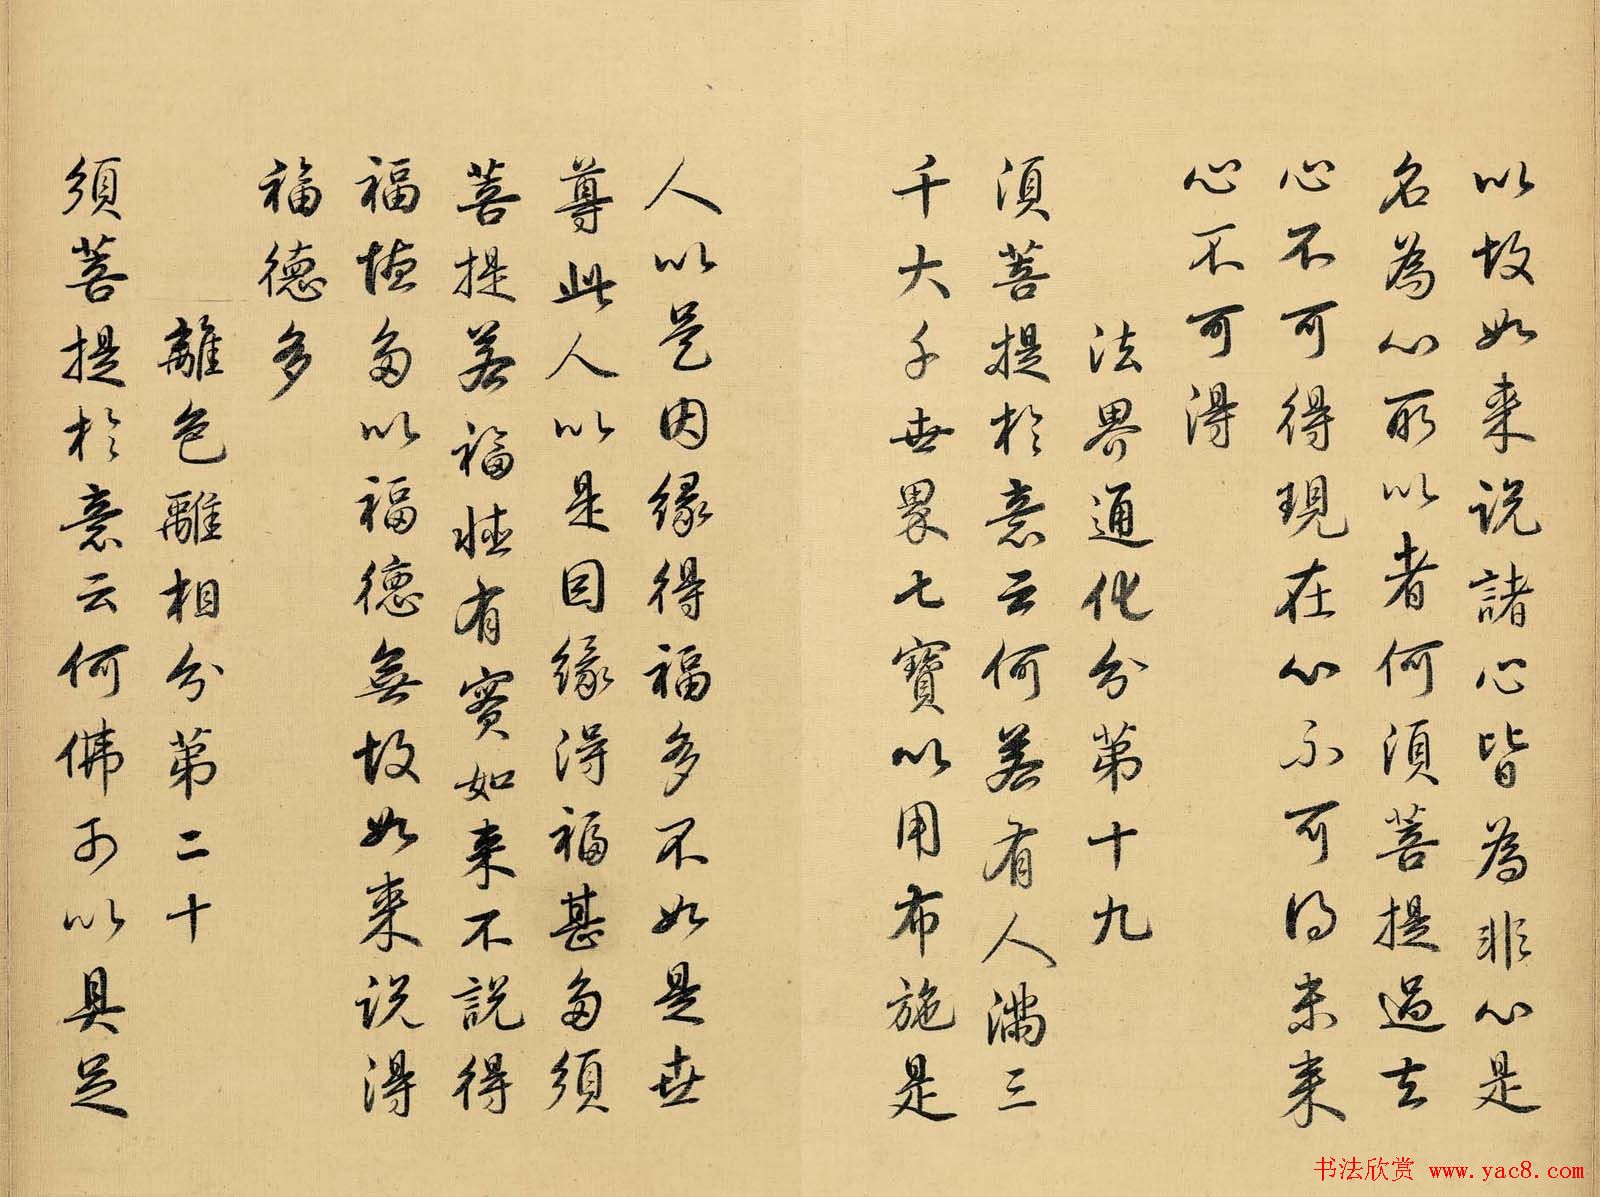 以故如来説諸心皆為非心是
名為心所以者何須菩提過去
心不可得現在心不可得未来
心不可得
法界通化分第十九
須菩提於意云何若有人滿三
千大千世界七寶以用布施是
人以是因緣得福多不如是世
尊此人以是因緣得福甚多須
菩提若福德有實如来不説得
福德多以福德無故如来説得
福德多
離色離相分第二十
須菩提於意云何佛可以具足
书法欣赏 www.yac8.com